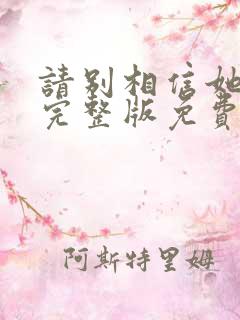 請别相信她
完整版免費
阿斯特里姆